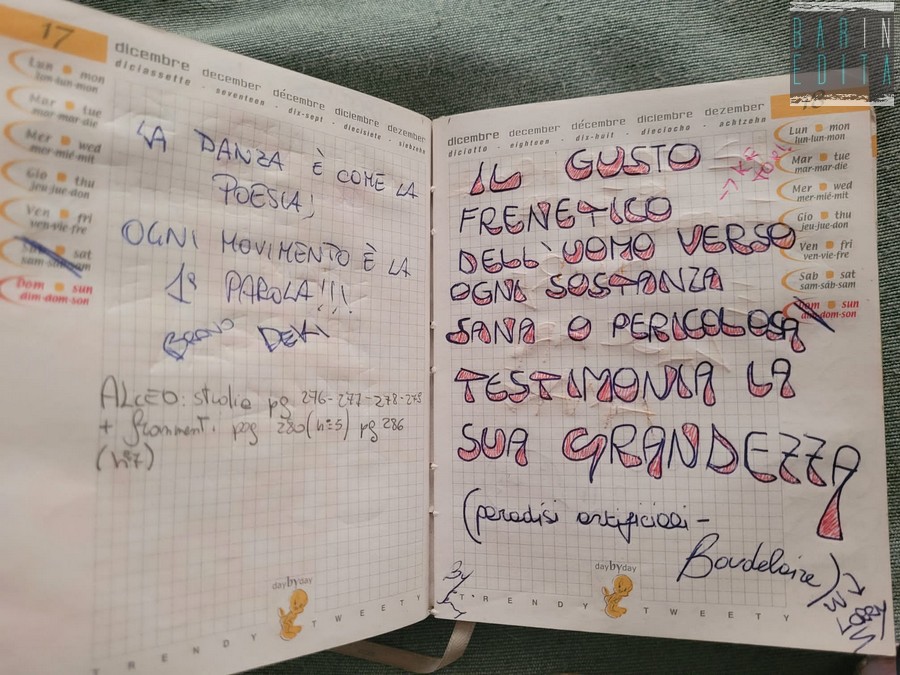 17
dicembre december décembre diciembre dezember
diciassette - seventeen - dix-sept - diecisiete - siebzehn
Lun mon
lun-lun-mon
Mar tue
mar-mar-die
Mer wed
mer-mié-mit
Gio thu
jeu-jue-don
Ven fri
ven-vie-fre
Sab sat
sam-sáb-sam
Dom sun
dim-dom-son
LA DANZA È COME LA
POESIA;
OGNI MOVIMENTO È LA
1ª PAROLA!!!
ALCEO: studia pg 276-277-278-279
+ frammenti pag 280 (n°5) pg 286
(n°7)
daybyday
TRENDY TWEETY
BAR IN
EDITA
18
dicembre december décembre diciembre dezember
diciotto - eighteen - dix-huit - dieciocho - achtzehn
Lun mon
lun-lun-mon
Mar tue
mar-mar-die
Mer wed
mer-mié-mit
Gio thu
jeu-jue-don
Ven fri
ven-vie-fre
Sab sat
sam-sáb-sam
Dom sun
dim-dom-son
IL GUSTO
FRENETICO
DELL'UOMO VERSO
OGNI SOSTANZA
SANA O PERICOLOSA
TESTIMONIA LA
SUA GRANDEZZA
(paradisi artificiali -
Baudelaire)
By
daybyday
TRENDY TWEETY